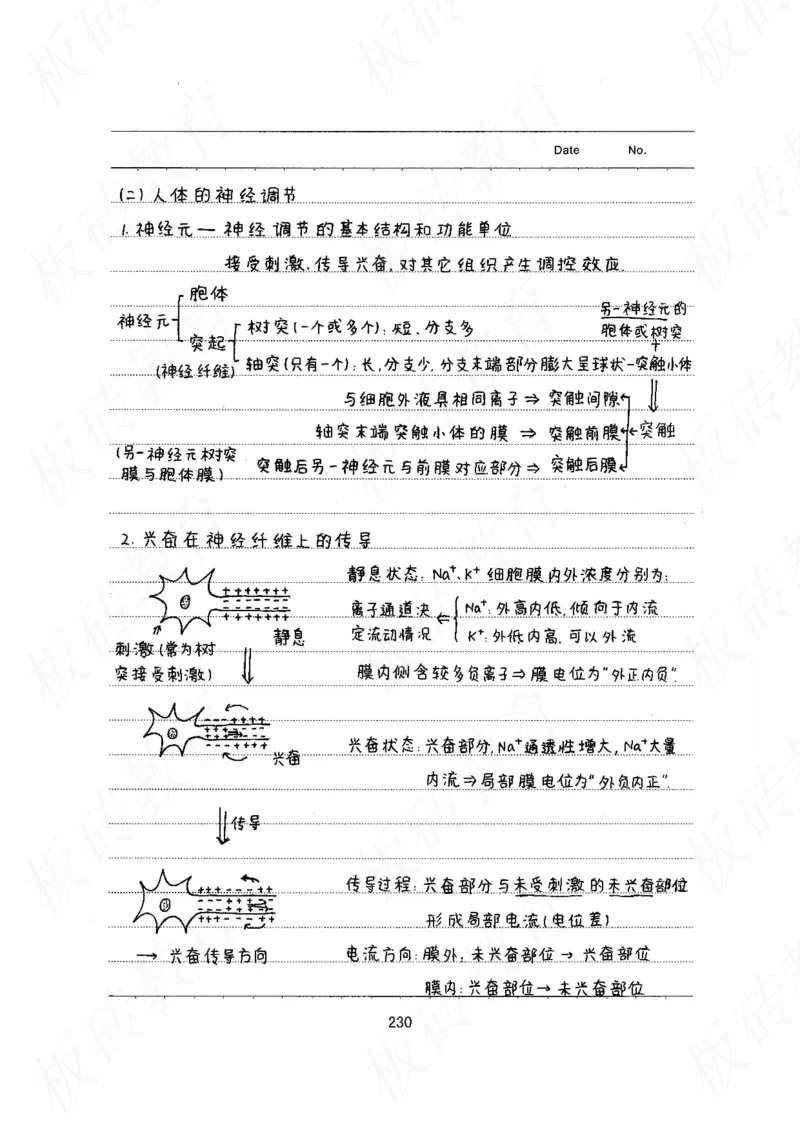 Date No.
(二)人体的神经调节
1.神经元—神经调节的基本结构和功能单位
接受刺激、传导兴奋,对其它组织产生调控效应.
神经元
胞体
突起
(神经纤维)
树突(一个或多个):短、分支多
轴突(只有一个):长,分支少,分支末端部分膨大呈球状-突触小体
另一神经元的
胞体或树突
+
与细胞外液具相同离子⇒突触间隙
轴突末端突触小体的膜⇒突触前膜←突触
(另一神经元树突
膜与胞体膜)
突触后另一神经元与前膜对应部分⇒突触后膜
2.兴奋在神经纤维上的传导
静息状态:Na⁺、K⁺细胞膜内外浓度分别为:
离子通道决
定流动情况
Na⁺:外高内低,倾向于内流
K⁺:外低内高,可以外流
静息
刺激(常为树
突接受刺激)
膜内侧含较多负离子⇒膜电位为“外正内负”.
兴奋状态:兴奋部分,Na⁺通透性增大,Na⁺大量
兴奋
内流⇒局部膜电位为“外负内正”.
传导
传导过程:兴奋部分与未受刺激的未兴奋部位
形成局部电流(电位差)
→兴奋传导方向
电流方向:膜外:未兴奋部位→兴奋部位
膜内:兴奋部位→未兴奋部位
230
板砖教育